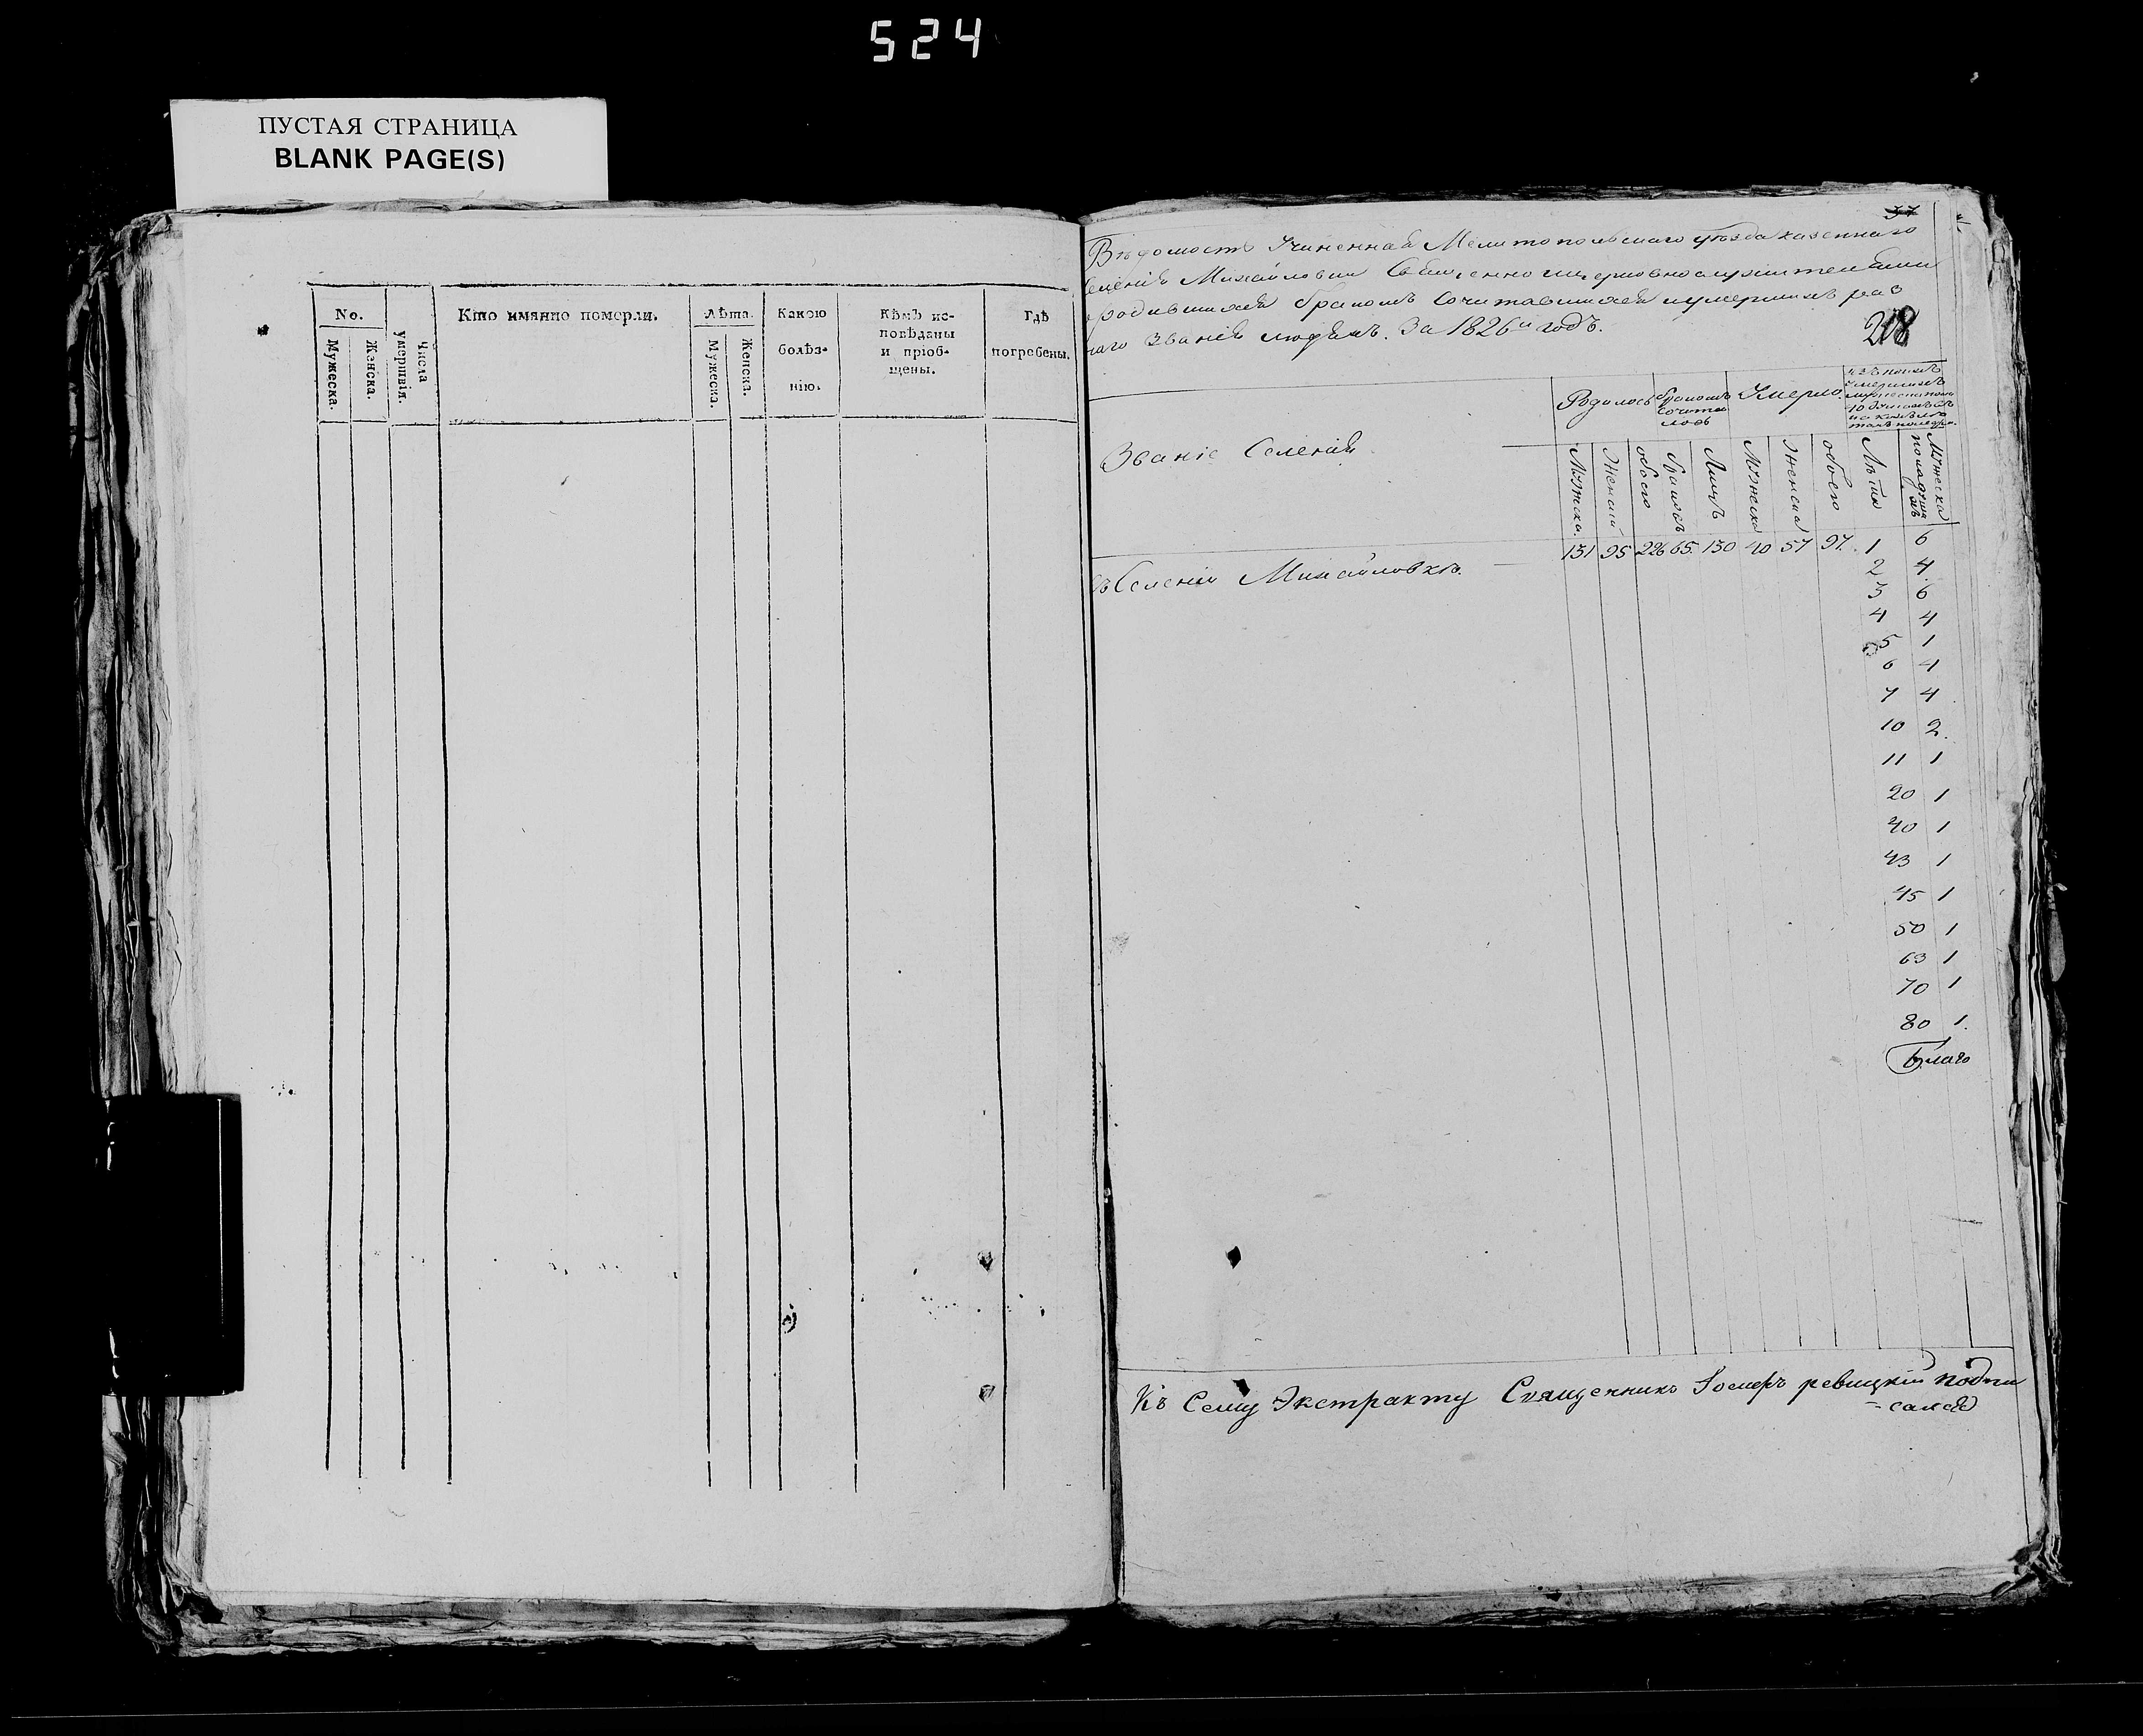 524
ПУСТАЯ СТРАНИЦА
BLANK PAGE(S)
No.
Мужеска.
Женска.
Числа умертвія.
Кто имянно померли.
Лѣта.
Мужеска.
Женска.
Какою
болѣз-
нію.
Кѣмъ ис-
повѣданы
и пріоб-
щены.
Гдѣ
погребены.
37
Вѣдомость Учиненная Мелитопольскаго уѣзда казеннаго
селенія Михайловки Священно и церковнослужителями
родившимся бракомъ сочитавшимся и умершимъ раз
наго званія людямъ. За 1826й годъ.
218
Званіе Селенія
Родилось
бракомъ
сочита
лось
Умерло.
Мужска.
Женска
обоего
браковъ
Лицъ
Мужска
Женска
обоего
Лѣта
Мужеска
Въ Селеніи Михайловкѣ.
131 95 226 65. 130 40 57 97. 1 6
2 4.
3 6
4 4
5 1
6 4
7 4
10 2.
11 1
20 1
40 1
43 1
45 1
50 1
63 1
70 1
80 1.
Благо
Къ Сему Экстракту Священникъ ревицкій подпи
-сался